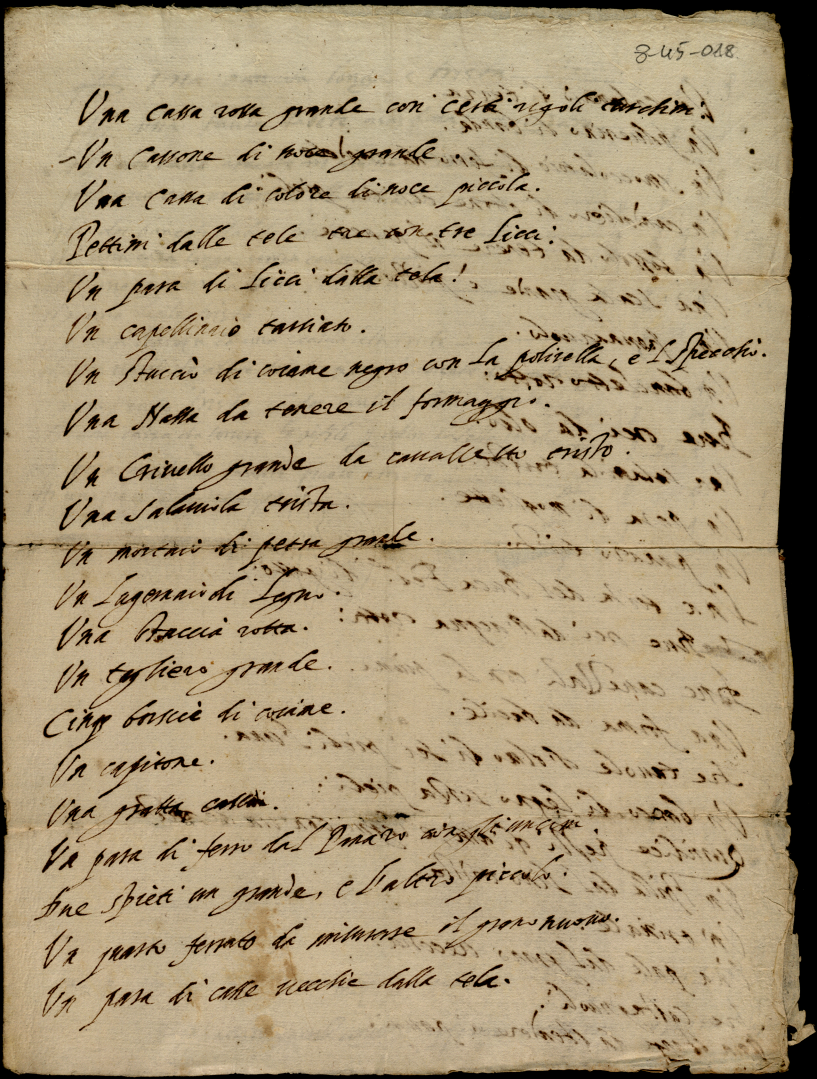 8-45-018
Una Cassa rossa grande con certi rigoli turchini.
Un Cassone di noce grande
Una Cassa di colore di noce piccola.
Pettini dalle tele tre con tre Licci.
Un para di Licci dalla tela.
Un capellinaio tarsiato.
Un Buccio di corame negro con la , e L Specchio.
Una Nassa da tenere il formaggio.
Un Crivello grande da cavalletto tristo.
Una Salarola trista.
Un mortaio di petra grande.
Un di Legno.
Una rotta.
Un tagliero grande.
Cinq borscie di corame.
Un capitone.
Una gratta casuli.
Un para di ferro dal con gli uncini
Due Spieti un grande, e l'altro piccolo.
Un quarto ferrato da misurare il grano nuovo.
Un para di casse vecchie dalla tela.